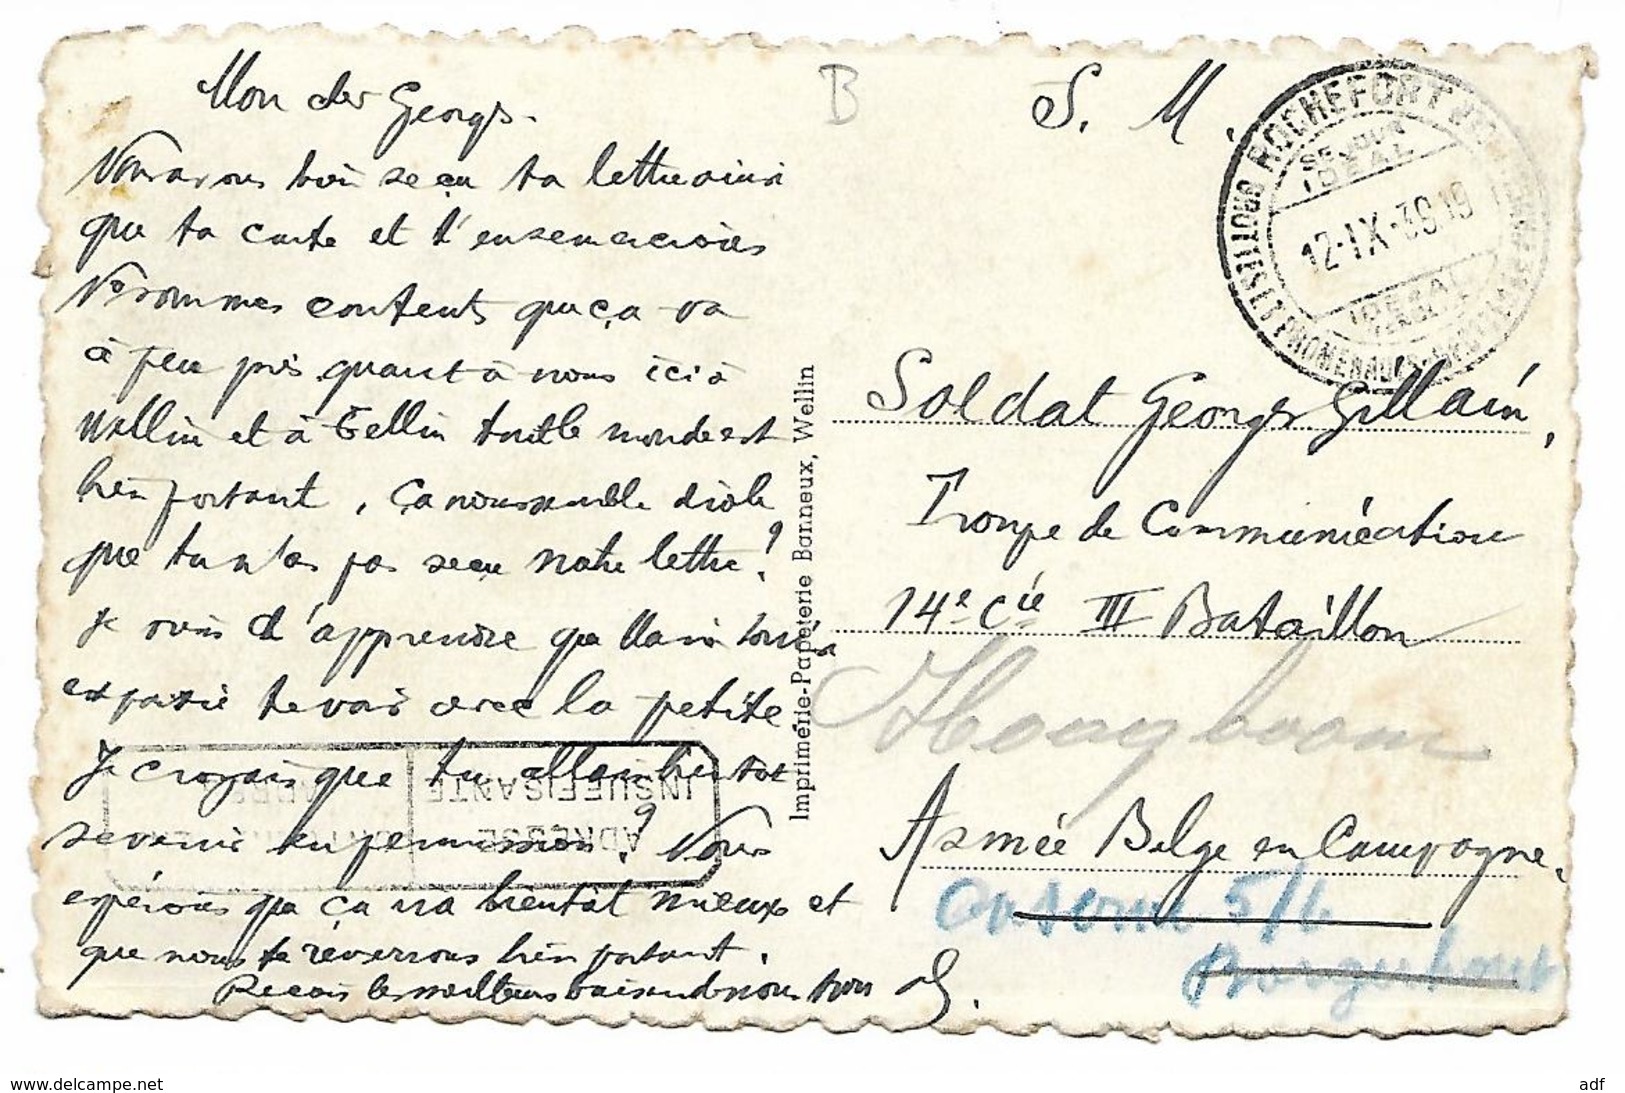 Mon cher Georges.
Nous avons bien reçu ta lettre ainsi
que ta carte et t'en remercions
Ns sommes contents que ça va
à peu près quant à nous ici à
Wellin et à Tellin tout le monde est
bien portant. Ça nous semble drôle
que tu n'as pas reçu notre lettre?
Je viens d'apprendre que
est partie te voir avec la petite
Je croyais que tu allais bientôt
revenir en permission? Nous
espérons que ça ira bientôt mieux et
que nous te reverrons bien portant.
Reçois les meilleurs baisers de nous tous
B
S. M.
ROCHEFORT
SEJOUR
IDEAL
12-IX-39 19
IDEAL
GROTTES
PROMENADES
Soldat Georges Gillain,
Troupe de Communication
14e Cie III Bataillon
Armée Belge en Campagne.
Caserne 5/6
Borgerhout
Imprimerie-Papeterie Banneux, Wellin
ADRESSE
INSUFFISANTE
www.delcampe.net
adf